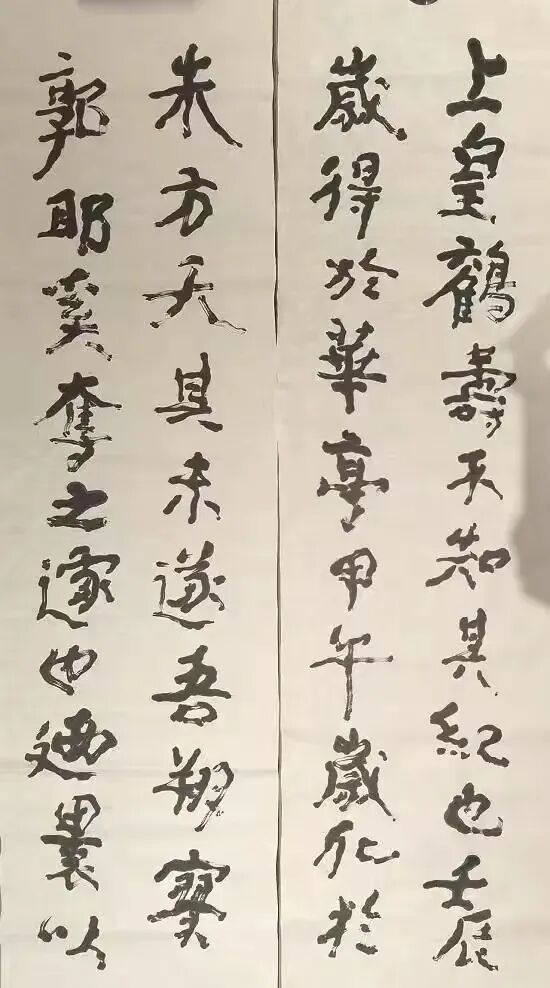 上皇鶴壽不知其紀也壬辰
歲得於華亭甲午歲化於
朱方天其未遂吾翔寥
郭耶奚奪之遽也迺裹以